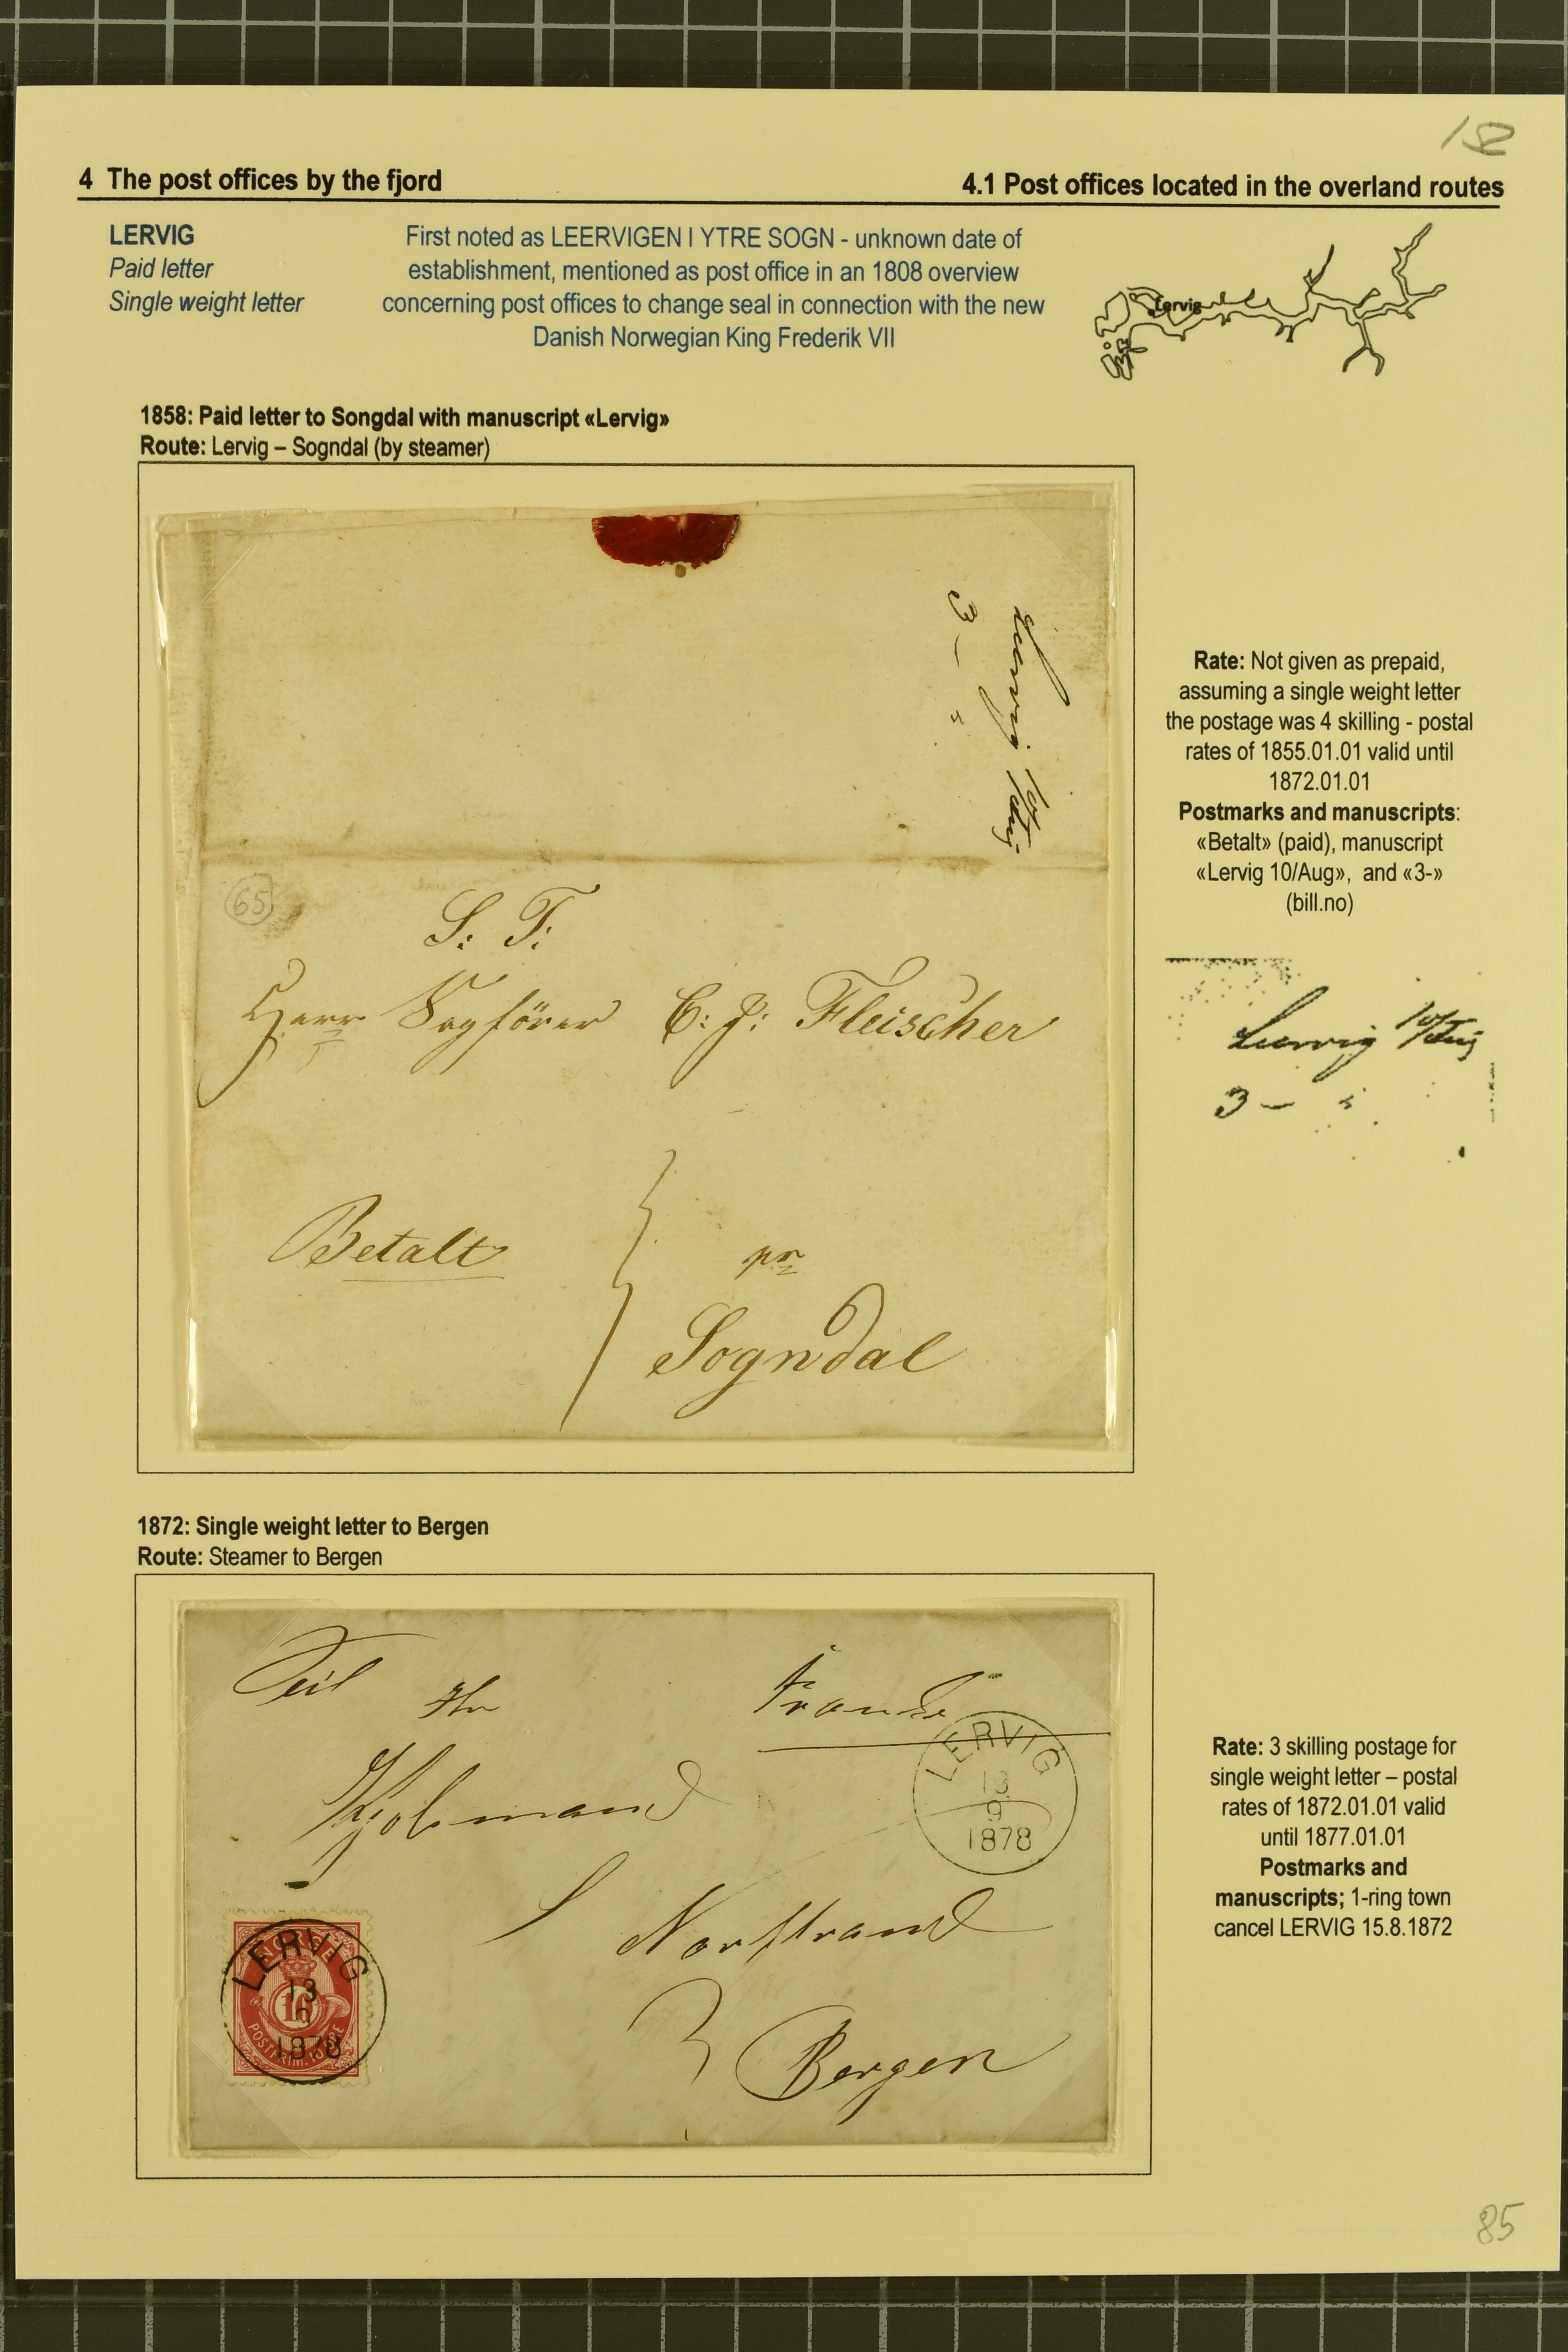 18
4 The post offices by the fjord
4.1 Post offices located in the overland routes
LERVIG
Paid letter
Single weight letter
First noted as LEERVIGEN I YTRE SOGN - unknown date of
establishment, mentioned as post office in an 1808 overview
concerning post offices to change seal in connection with the new
Danish Norwegian King Frederik VII
Lervig
1858: Paid letter to Songdal with manuscript «Lervig»
Route: Lervig – Sogndal (by steamer)
Leervig 10/Aug.
3 –
65
S: T:
Herr Sagförer C: J: Fleischer
Betalt
pr
Sogndal
Rate: Not given as prepaid,
assuming a single weight letter
the postage was 4 skilling - postal
rates of 1855.01.01 valid until
1872.01.01
Postmarks and manuscripts:
«Betalt» (paid), manuscript
«Lervig 10/Aug», and «3-»
(bill.no)
Leervig 10/Aug
3 –
1872: Single weight letter to Bergen
Route: Steamer to Bergen
Til Hr
Franko
LERVIG
13
9
1878
Kjøbmand
S Norstrand
Bergen
NORGE
LERVIG
13
9
1878
10
Rate: 3 skilling postage for
single weight letter – postal
rates of 1872.01.01 valid
until 1877.01.01
Postmarks and
manuscripts; 1-ring town
cancel LERVIG 15.8.1872
85